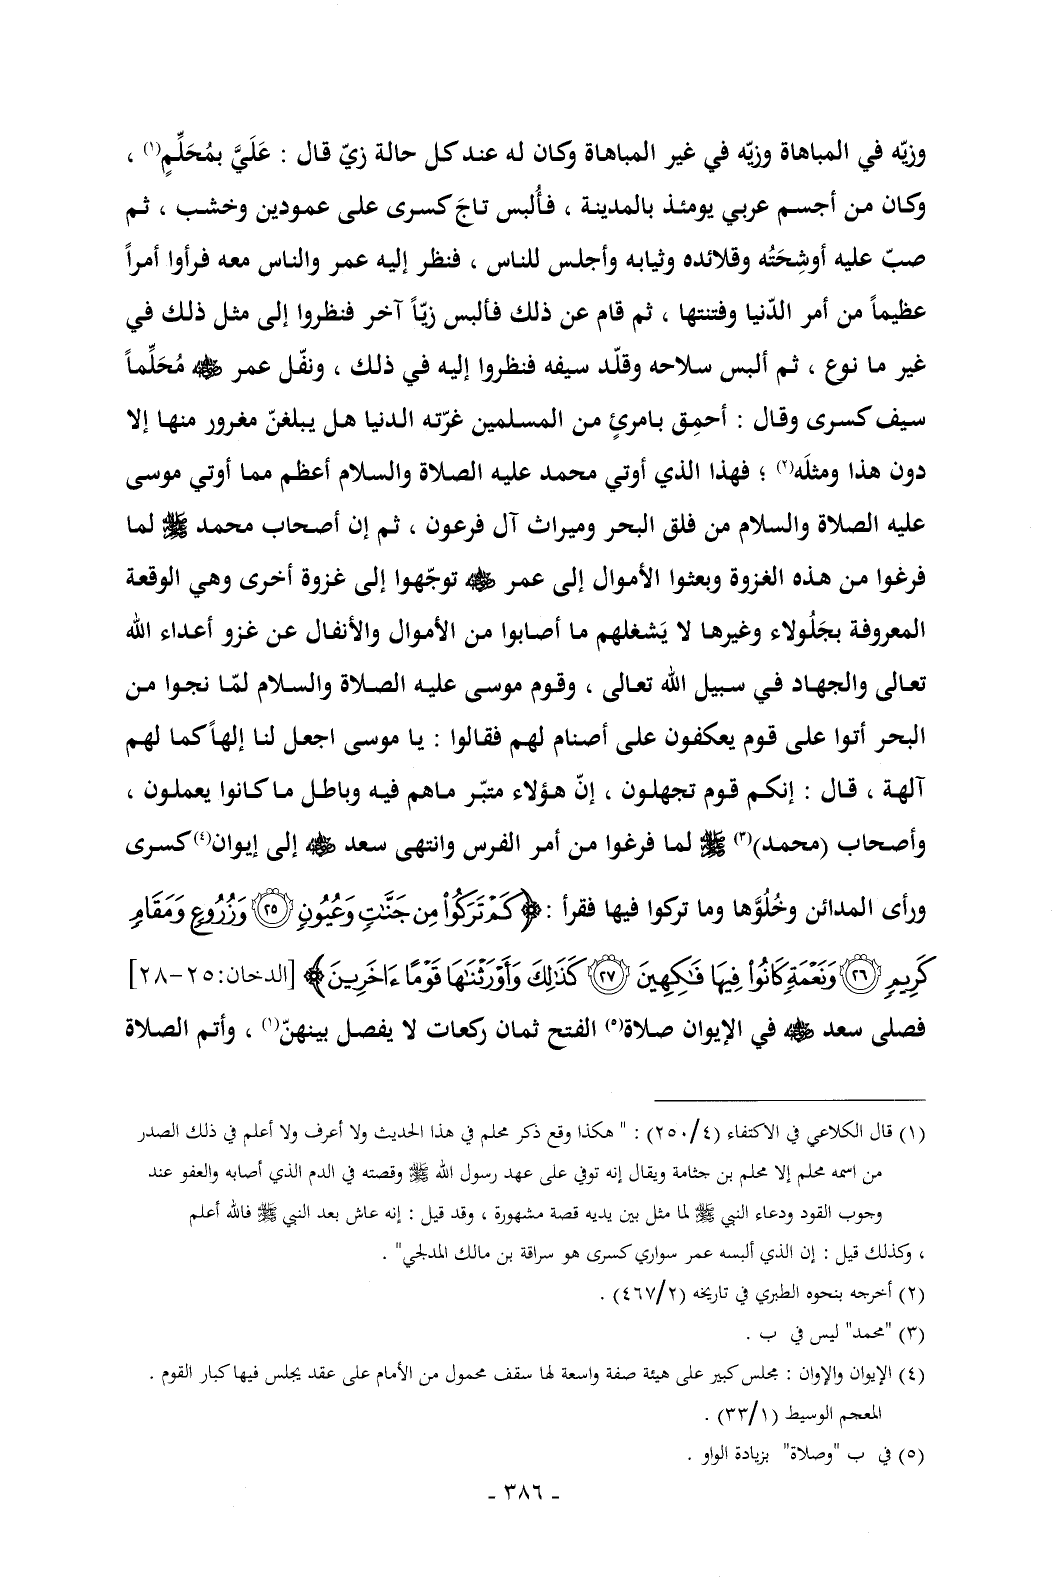 وزيّه في المباهاة وزيّه في غير المباهاة وكان له عند كل حالة زيّ قال : عَلَيَّ بمُحَلِّمٍ(١) ،
وكان من أجسم عربي يومئذ بالمدينة ، فأُلبس تاجَ كسرى على عمودين وخشب ، ثم
صبّ عليه أوشِحَتُه وقلائده وثيابه وأجلس للناس ، فنظر إليه عمر والناس معه فرأوا أمراً
عظيماً من أمر الدّنيا وفتنتها ، ثم قام عن ذلك فألبس زيّاً آخر فنظروا إلى مثل ذلك في
غير ما نوع ، ثم ألبس سلاحه وقلّد سيفه فنظروا إليه في ذلك ، ونفّل عمر ﵁ مُحَلِّماً
سيف كسرى وقال : أحمِق بامرئٍ من المسلمين غرّته الدنيا هل يبلغنّ مغرور منها إلا
دون هذا ومثلَه(٢) ؛ فهذا الذي أوتي محمد عليه الصلاة والسلام أعظم مما أوتي موسى
عليه الصلاة والسلام من فلق البحر وميراث آل فرعون ، ثم إن أصحاب محمد ﷺ لما
فرغوا من هذه الغزوة وبعثوا الأموال إلى عمر ﵁ توجّهوا إلى غزوة أخرى وهي الوقعة
المعروفة بجَلُولاء وغيرها لا يَشغلهم ما أصابوا من الأموال والأنفال عن غزو أعداء الله
تعالى والجهاد في سبيل الله تعالى ، وقوم موسى عليه الصلاة والسلام لمّا نجوا من
البحر أتوا على قوم يعكفون على أصنام لهم فقالوا : يا موسى اجعل لنا إلهاً كما لهم
آلهة ، قال : إنكم قوم تجهلون ، إنّ هؤلاء متبّر ماهم فيه وباطل ما كانوا يعملون ،
وأصحاب (محمد)(٣) ﷺ لما فرغوا من أمر الفرس وانتهى سعد ﵁ إلى إيوان(٤) كسرى
ورأى المدائن وخُلُوَّها وما تركوا فيها فقرأ : ﴿ كَمْ تَرَكُواْ مِن جَنَّٰتٍ وَعُيُونٍ ۝٢٥ وَزُرُوعٍ وَمَقَامٍ
كَرِيمٍ ۝٢٦ وَنَعْمَةٍ كَانُواْ فِيهَا فَٰكِهِينَ ۝٢٧ كَذَٰلِكَ وَأَوْرَثْنَٰهَا قَوْمًا ءَاخَرِينَ ﴾ [الدخان:٢٥-٢٨]
فصلى سعد ﵁ في الإيوان صلاة(٥) الفتح ثمان ركعات لا يفصل بينهنّ(١) ، وأتم الصلاة
(١) قال الكلاعي في الاكتفاء (٢٥٠/٤) : " هكذا وقع ذكر محلم في هذا الحديث ولا أعرف ولا أعلم في ذلك الصدر
من اسمه محلم إلا محلم بن جثامة ويقال إنه توفي على عهد رسول الله ﷺ وقصته في الدم الذي أصابه والعفو عند
وجوب القود ودعاء النبي ﷺ لما مثل بين يديه قصة مشهورة ، وقد قيل : إنه عاش بعد النبي ﷺ فالله أعلم
، وكذلك قيل : إن الذي ألبسه عمر سواري كسرى هو سراقة بن مالك المدلجي" .
(٢) أخرجه بنحوه الطبري في تاريخه (٤٦٧/٢) .
(٣) "محمد" ليس في ب .
(٤) الإيوان والإوان : مجلس كبير على هيئة صفة واسعة لها سقف محمول من الأمام على عقد يجلس فيها كبار القوم .
المعجم الوسيط (٣٣/١) .
(٥) في ب "وصلاة" بزيادة الواو .
- ٣٨٦ -